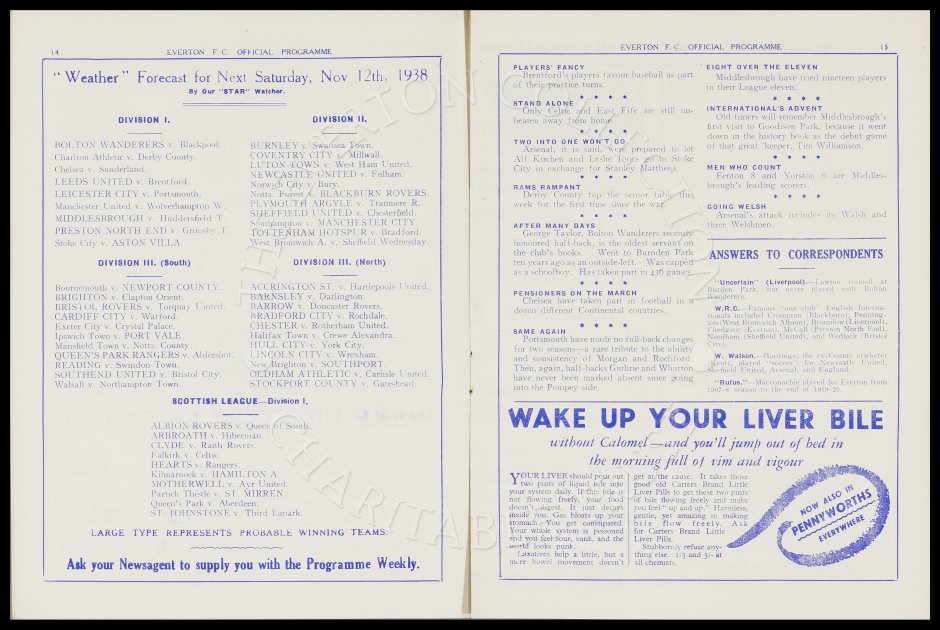 14
EVERTON F. C. OFFICIAL PROGRAMME
"Weather" Forecast for Next Saturday, Nov 12th, 1938
By Our "STAR" Watcher.
DIVISION I.
BOLTON WANDERERS v. Blackpool.
Charlton Athletic v. Derby County.
Chelsea v. Sunderland.
LEEDS UNITED v. Brentford.
LEICESTER CITY v. Portsmouth.
Manchester United v. Wolverhampton W.
MIDDLESBROUGH v. Huddersfield T.
PRESTON NORTH END v. Grimsby T.
Stoke City v. ASTON VILLA.
DIVISION II.
BURNLEY v. Swansea Town.
COVENTRY CITY v. Millwall.
LUTON TOWN v. West Ham United.
NEWCASTLE UNITED v. Fulham.
Norwich City v. Bury.
Notts. Forest v. BLACKBURN ROVERS.
PLYMOUTH ARGYLE v. Tranmere R.
SHEFFIELD UNITED v. Chesterfield.
Southampton v. MANCHESTER CITY.
TOTTENHAM HOTSPUR v. Bradford.
West Bromwich A. v. Sheffield Wednesday.
DIVISION III. (South)
Bournemouth v. NEWPORT COUNTY.
BRIGHTON v. Clapton Orient.
BRISTOL ROVERS v. Torquay United.
CARDIFF CITY v. Watford.
Exeter City v. Crystal Palace.
Ipswich Town v. PORT VALE.
Mansfield Town v. Notts. County.
QUEEN'S PARK RANGERS v. Aldershot.
READING v. Swindon Town.
SOUTHEND UNITED v. Bristol City.
Walsall v. Northampton Town.
DIVISION III. (North)
ACCRINGTON ST. v. Hartlepools United.
BARNSLEY v. Darlington.
BARROW v. Doncaster Rovers.
BRADFORD CITY v. Rochdale.
CHESTER v. Rotherham United.
Halifax Town v. Crewe Alexandra.
HULL CITY v. York City.
LINCOLN CITY v. Wrexham.
New Brighton v. SOUTHPORT.
OLDHAM ATHLETIC v. Carlisle United.
STOCKPORT COUNTY v. Gateshead.
SCOTTISH LEAGUE—Division I.
ALBION ROVERS v. Queen of South.
ARBROATH v. Hibernian.
CLYDE v. Raith Rovers.
Falkirk v. Celtic.
HEARTS v. Rangers.
Kilmarnock v. HAMILTON A.
MOTHERWELL v. Ayr United.
Partick Thistle v. ST. MIRREN.
Queen's Park v. Aberdeen.
ST. JOHNSTONE v. Third Lanark.
LARGE TYPE REPRESENTS PROBABLE WINNING TEAMS.
Ask your Newsagent to supply you with the Programme Weekly.
EVERTON F.C. OFFICIAL PROGRAMME
15
PLAYERS' FANCY
Brentford's players favour baseball as part
of their practice turns.
* * * *
STAND ALONE
Only Celtic and East Fife are still un-
beaten away from home.
* * * *
TWO INTO ONE WON'T GO
Arsenal, it is said, were prepared to let
Alf Kirchen and Leslie Jones go to Stoke
City in exchange for Stanley Matthews.
* * * *
RAMS RAMPANT
Derby County top the senior table this
week for the first time since the war.
* * * *
AFTER MANY DAYS
George Taylor, Bolton Wanderers recently
honoured half-back, is the oldest servant on
the club's books. Went to Burnden Park
ten years ago as an outside-left. Was capped
as a schoolboy. Has taken part in 436 games.
* * * *
PENSIONERS ON THE MARCH
Chelsea have taken part in football in a
dozen different Continental countries.
* * * *
SAME AGAIN
Portsmouth have made no full-back changes
for two seasons—a rare tribute to the ability
and consistency of Morgan and Rochford.
Then, again, half-backs Guthrie and Wharton
have never been marked absent since going
into the Pompey side.
EIGHT OVER THE ELEVEN
Middlesbrough have tried nineteen players
in their League eleven.
* * * *
INTERNATIONAL'S ADVENT
Old timers will remember Middlesbrough's
first visit to Goodison Park, because it went
down in the history book as the debut game
of that great 'keeper, Tim Williamson.
* * * *
MEN WHO COUNT
Fenton 8 and Yorston 6 are Middles-
brough's leading scorers.
* * * *
GOING WELSH
Arsenal's attack includes its Walsh and
three Welshmen.
ANSWERS TO CORRESPONDENTS
"Uncertain" (Liverpool).—Lawton trained at
Burden Park, but never played with Bolton
Wanderers.
W.R.C.—Famous "one club" English Interna-
tionals included Crompton (Blackburn), Penning-
ton (West Bromwich Albion), Bromilow (Liverpool),
Chedgzoy (Everton), McCall (Preston North End),
Needham (Sheffield United), and Wedlock (Bristol
City).
W. Watson.—Hardinge, the ex-County cricketer
(Kent), played "soccer" for Newcastle United,
Sheffield United, Arsenal, and England.
"Rufus."—Macconachie played for Everton from
1907-8 season to the end of 1919-20.
WAKE UP YOUR LIVER BILE
without Calomel—and you'll jump out of bed in
the morning full of vim and vigour
YOUR LIVER should pour out
two pints of liquid bile into
your system daily. If this bile is
not flowing freely, your food
doesn't digest. It just decays
inside you. Gas bloats up your
stomach. You get constipated.
Your whole system is poisoned
and you feel sour, sunk, and the
world looks punk.
Laxatives help a little, but a
mere bowel movement doesn't
get at the cause. It takes those
good old Carters Brand Little
Liver Pills to get these two pints
of bile flowing freely and make
you feel "up and up." Harmless,
gentle, yet amazing in making
bile flow freely. Ask
for Carters Brand Little
Liver Pills.
Stubbornly refuse any-
thing else. 1/3 and 3/- at
all chemists.
NOW ALSO IN
PENNYWORTHS
EVERYWHERE
THE EVERTON COLLECTION
CHARITABLE